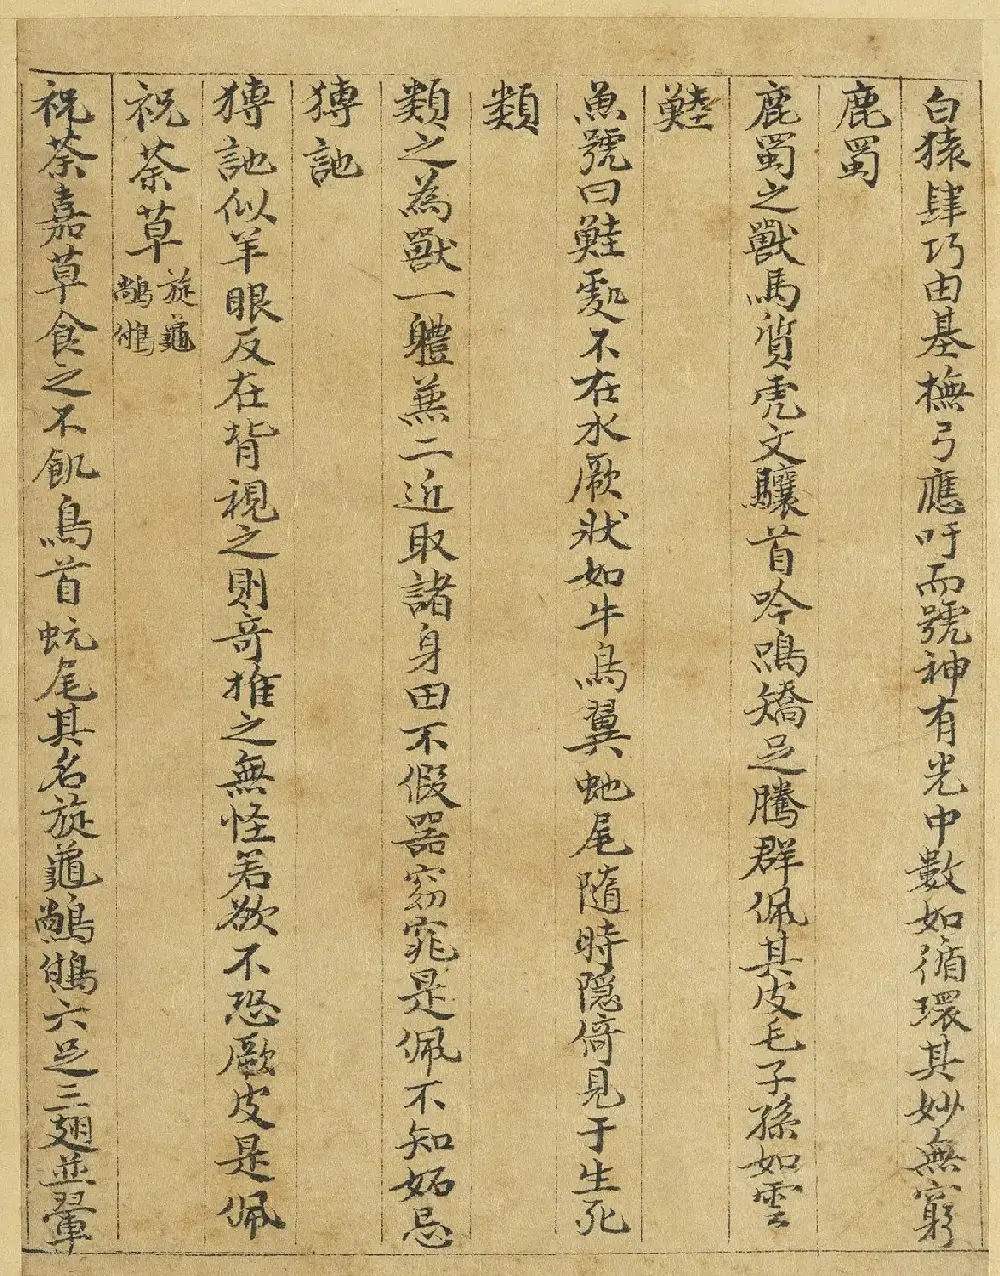 白猿肆巧由基撫弓應吁而號神有光中數如循環其妙無窮
鹿蜀
鹿蜀之獸馬質虎文驤首吟鳴矯足騰群佩其皮毛子孫如雲
鯥
魚號曰鮭處不在水厥狀如牛鳥翼虵尾隨時隱倚見于生死
類
類之為獸一體兼二近取諸身田不假器窈窕是佩不知妬忌
猼訑
猼訑似羊眼反在背視之則奇推之無怪若欲不恐厥皮是佩
祝荼草 旋龜 鵸鵂
祝荼嘉草食之不飢鳥首蚖尾其名旋龜鵸鵂六足三翅並翬